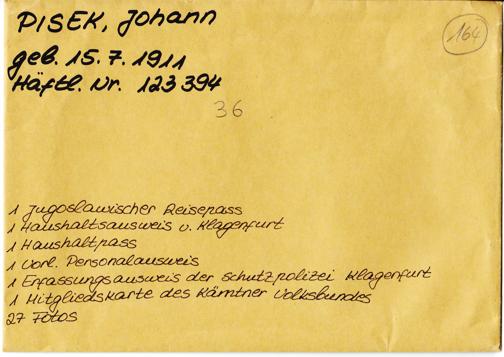 PISEK, Johann
164
geb. 15. 7. 1911
Häftl. Nr. 123 394
36
1 Jugoslawischer Reisepass
1 Haushaltsausweis v. Klagenfurt
1 Haushaltpass
1 Vorl. Personalausweis
1 Erfassungsausweis der Schutzpolizei Klagenfurt
1 Mitgliedskarte des Kärntner Volksbundes
27 Fotos